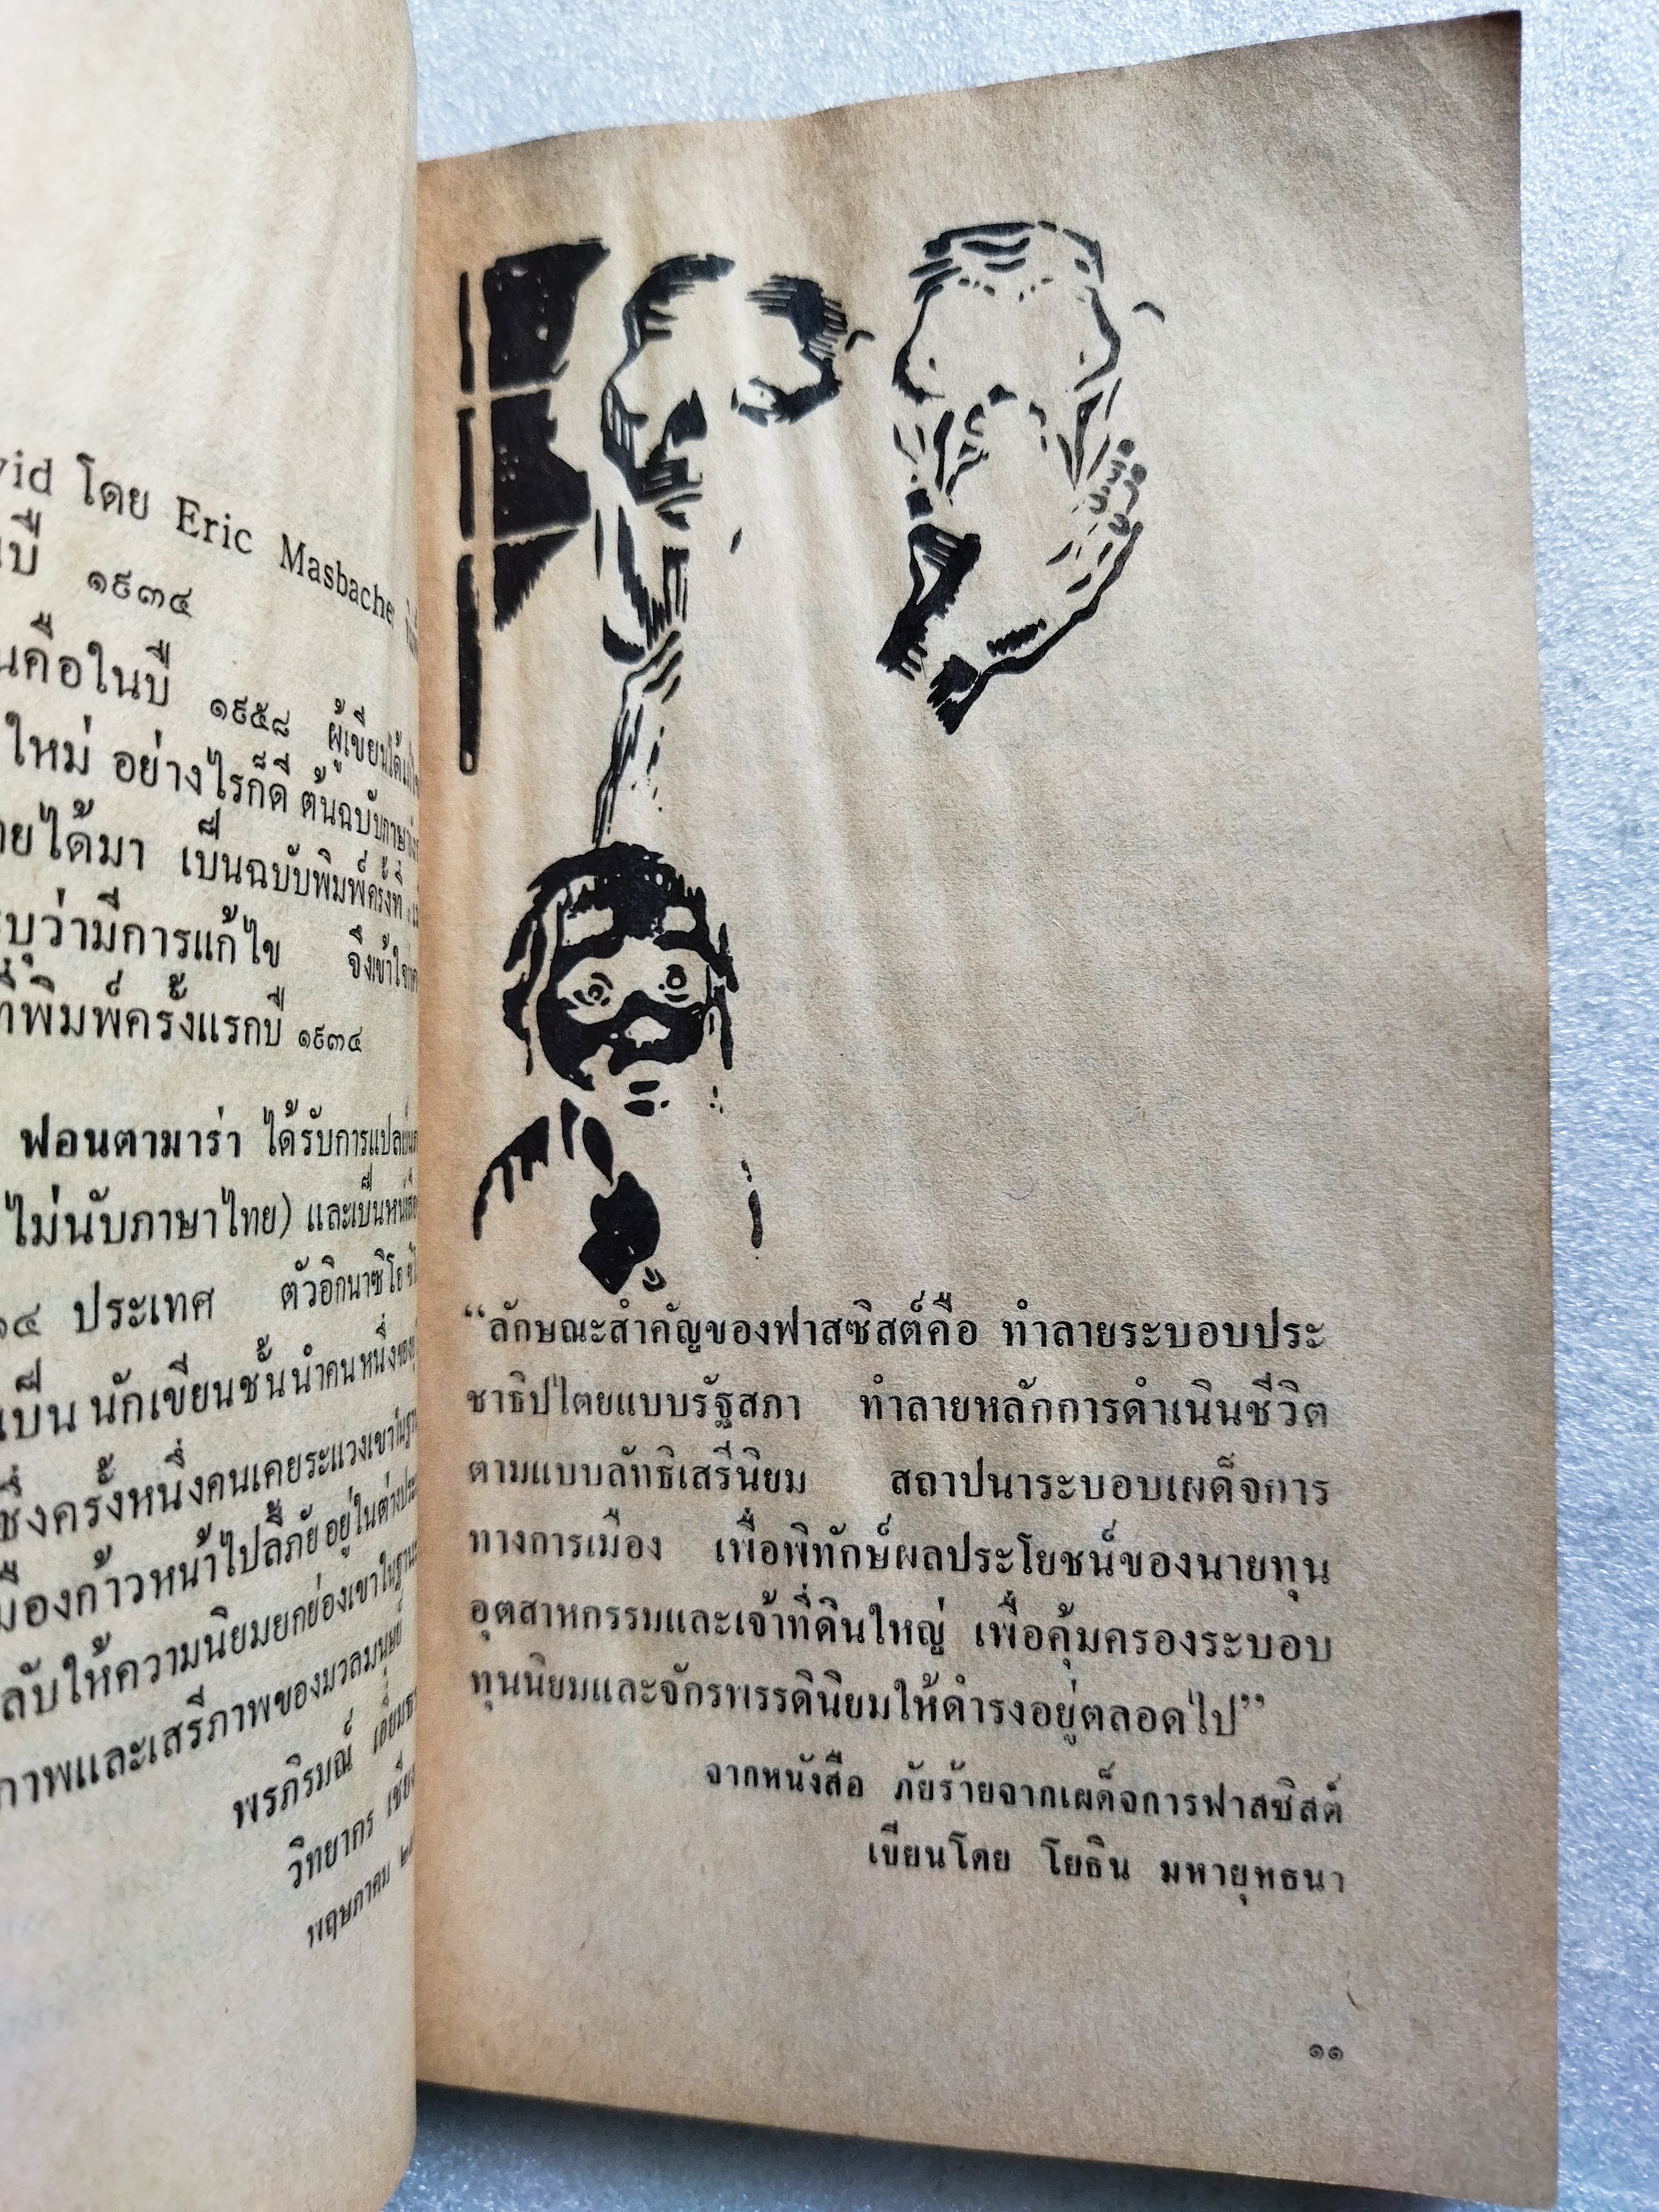 โดย Eric Masbacher
๑๙๓๔
คือในปี ๑๙๕๘ ผู้เขียนได้
ใหม่ อย่างไรก็ดี ต้นฉบับภาษา
ได้มา เป็นฉบับพิมพ์ครั้งที่
ว่ามีการแก้ไข จึงเข้าใจ
ที่พิมพ์ครั้งแรกปี ๑๙๓๔
ฟอนตามาร่า ได้รับการแปล
ไม่นับภาษาไทย) และเป็น
ประเทศ ตัวอิกนาซิโอ
เป็น นักเขียนชั้นนำคนหนึ่งของ
ซึ่งครั้งหนึ่งคนเคยระแวงเขาใน
ก้าวหน้าไปลี้ภัยอยู่ในต่าง
ให้ความนิยมยกย่องเขาใน
ภาพและเสรีภาพของมวลมนุษย์
พรภิรมณ์ เอี่ยม
วิทยากร เชียง
พฤษภาคม
“ลักษณะสำคัญของฟาสซิสต์คือ ทำลายระบอบประ
ชาธิปไตยแบบรัฐสภา ทำลายหลักการดำเนินชีวิต
ตามแบบลัทธิเสรีนิยม สถาปนาระบอบเผด็จการ
ทางการเมือง เพื่อพิทักษ์ผลประโยชน์ของนายทุน
อุตสาหกรรมและเจ้าที่ดินใหญ่ เพื่อคุ้มครองระบอบ
ทุนนิยมและจักรพรรดินิยมให้ดำรงอยู่ตลอดไป”
จากหนังสือ ภัยร้ายจากเผด็จการฟาสซิสต์
เขียนโดย โยธิน มหายุทธนา
๑๑